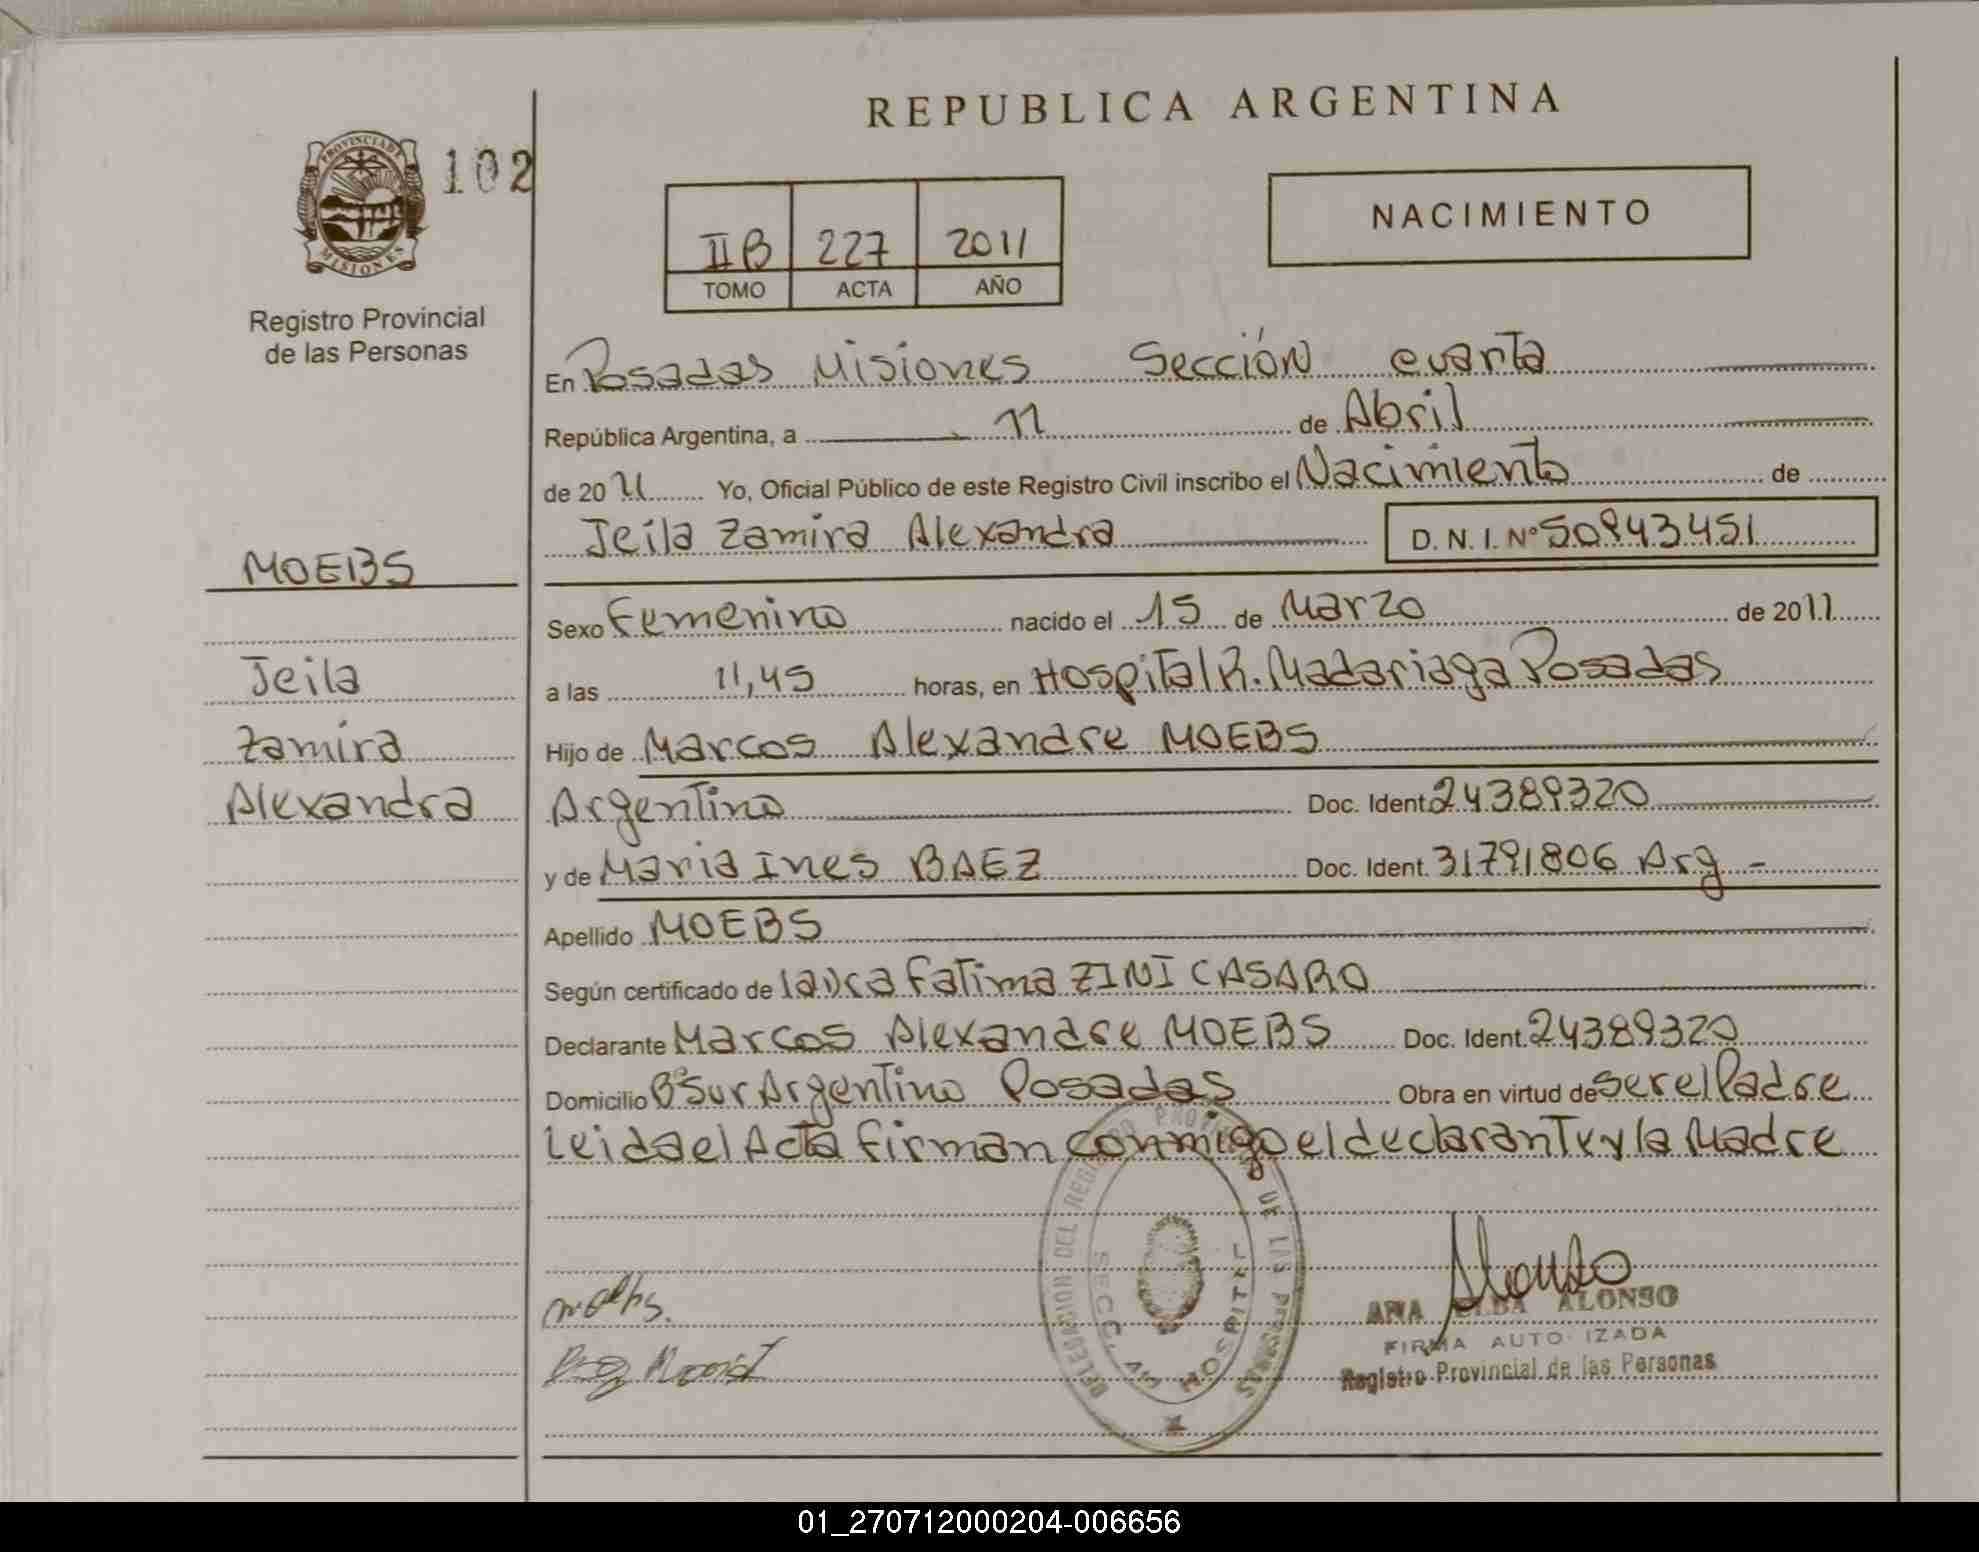 REPUBLICA ARGENTINA
PROVINCIA DE
MISIONES
102
Registro Provincial
de las Personas
II B 227 2011
TOMO ACTA AÑO
NACIMIENTO
En Posadas Misiones Sección cuarta
República Argentina, a 11 de Abril
de 20 11 Yo, Oficial Público de este Registro Civil inscribo el Nacimiento de
Jeila Zamira Alexandra D. N. I. Nº 50943451
MOEBS
Jeila
Zamira
Alexandra
Sexo Femenino nacido el 15 de Marzo de 2011
a las 11,45 horas, en Hospital R. Madariaga Posadas
Hijo de Marcos Alexandre MOEBS
Argentino Doc. Ident. 24389320
y de Maria Ines BAEZ Doc. Ident. 31791806 Arg -
Apellido MOEBS
Según certificado de laura Fatima ZINI CASARO
Declarante Marcos Alexandre MOEBS Doc. Ident. 24389320
Domicilio Bº Sur Argentino Posadas Obra en virtud de ser el Padre
Leida el Acta firman conmigo el declarante y la Madre
DELEGACION DEL REGISTRO PROVINCIAL DE LAS PERSONAS
SECC. HOSPITAL
ANA ELBA ALONSO
FIRMA AUTORIZADA
Registro Provincial de las Personas
01_270712000204-006656